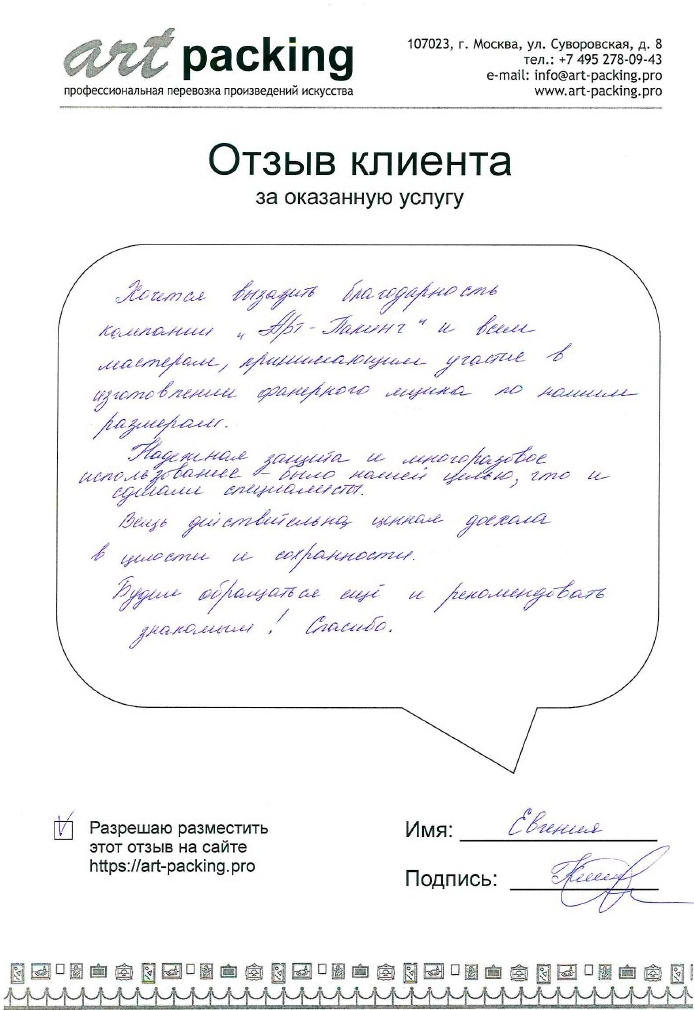 art packing
профессиональная перевозка произведений искусства
107023, г. Москва, ул. Суворовская, д. 8
тел.: +7 495 278-09-43
e-mail: info@art-packing.pro
www.art-packing.pro
Отзыв клиента
за оказанную услугу
Хочется вызадить благодарность
компании "Арт-Пакинг" и всем
мастерам, принимающим участие в
изготовлении фанерного ящика по нашим
размерам.
Надежная защита и многоразовое
использование - было нашей целью, что и
сделали специалисты.
Вещь действительно ценная доехала
в целости и сохранности.
Будем обращаться ещё и рекомендовать
знакомым! Спасибо.
Разрешаю разместить
этот отзыв на сайте
https://art-packing.pro
Имя: Евгения
Подпись: